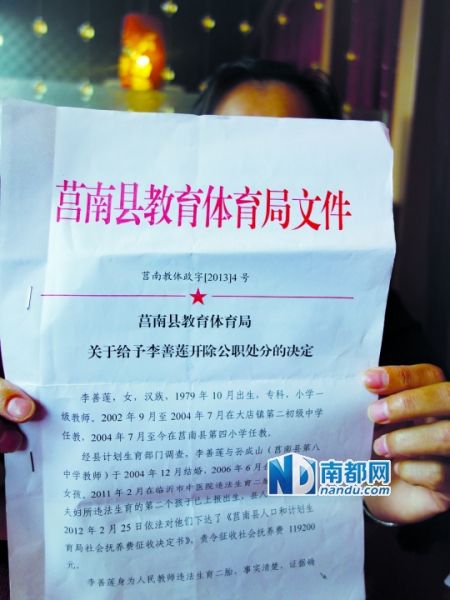 莒南县教育体育局文件
莒南教体政字[2013]4 号
莒南县教育体育局
关于给予李善莲开除公职处分的决定
李善莲，女，汉族，1979 年 10 月出生，专科，小学一
级教师。2002 年 9 月至 2004 年 7 月在大店镇第二初级中学
任教，2004 年 7 月至今在莒南县第四小学任教。
经县计划生育部门调查，李善莲与孙成山（莒南县第八
中学教师）于 2004 年 12 月结婚，2006 年 6 月
女孩。2011 年 2 月在临沂市中医院违法生育二
夫妇所违法生育的第二个孩子已上报出生，县人
2012 年 2 月 25 日依法对他们下达了《莒南县人口和计划生
育局社会抚养费征收决定书》，责令征收社会抚养费 119200
元。
李善莲身为人民教师违法生育二胎，事实清楚，证据确
ND 南都网
nandu.com